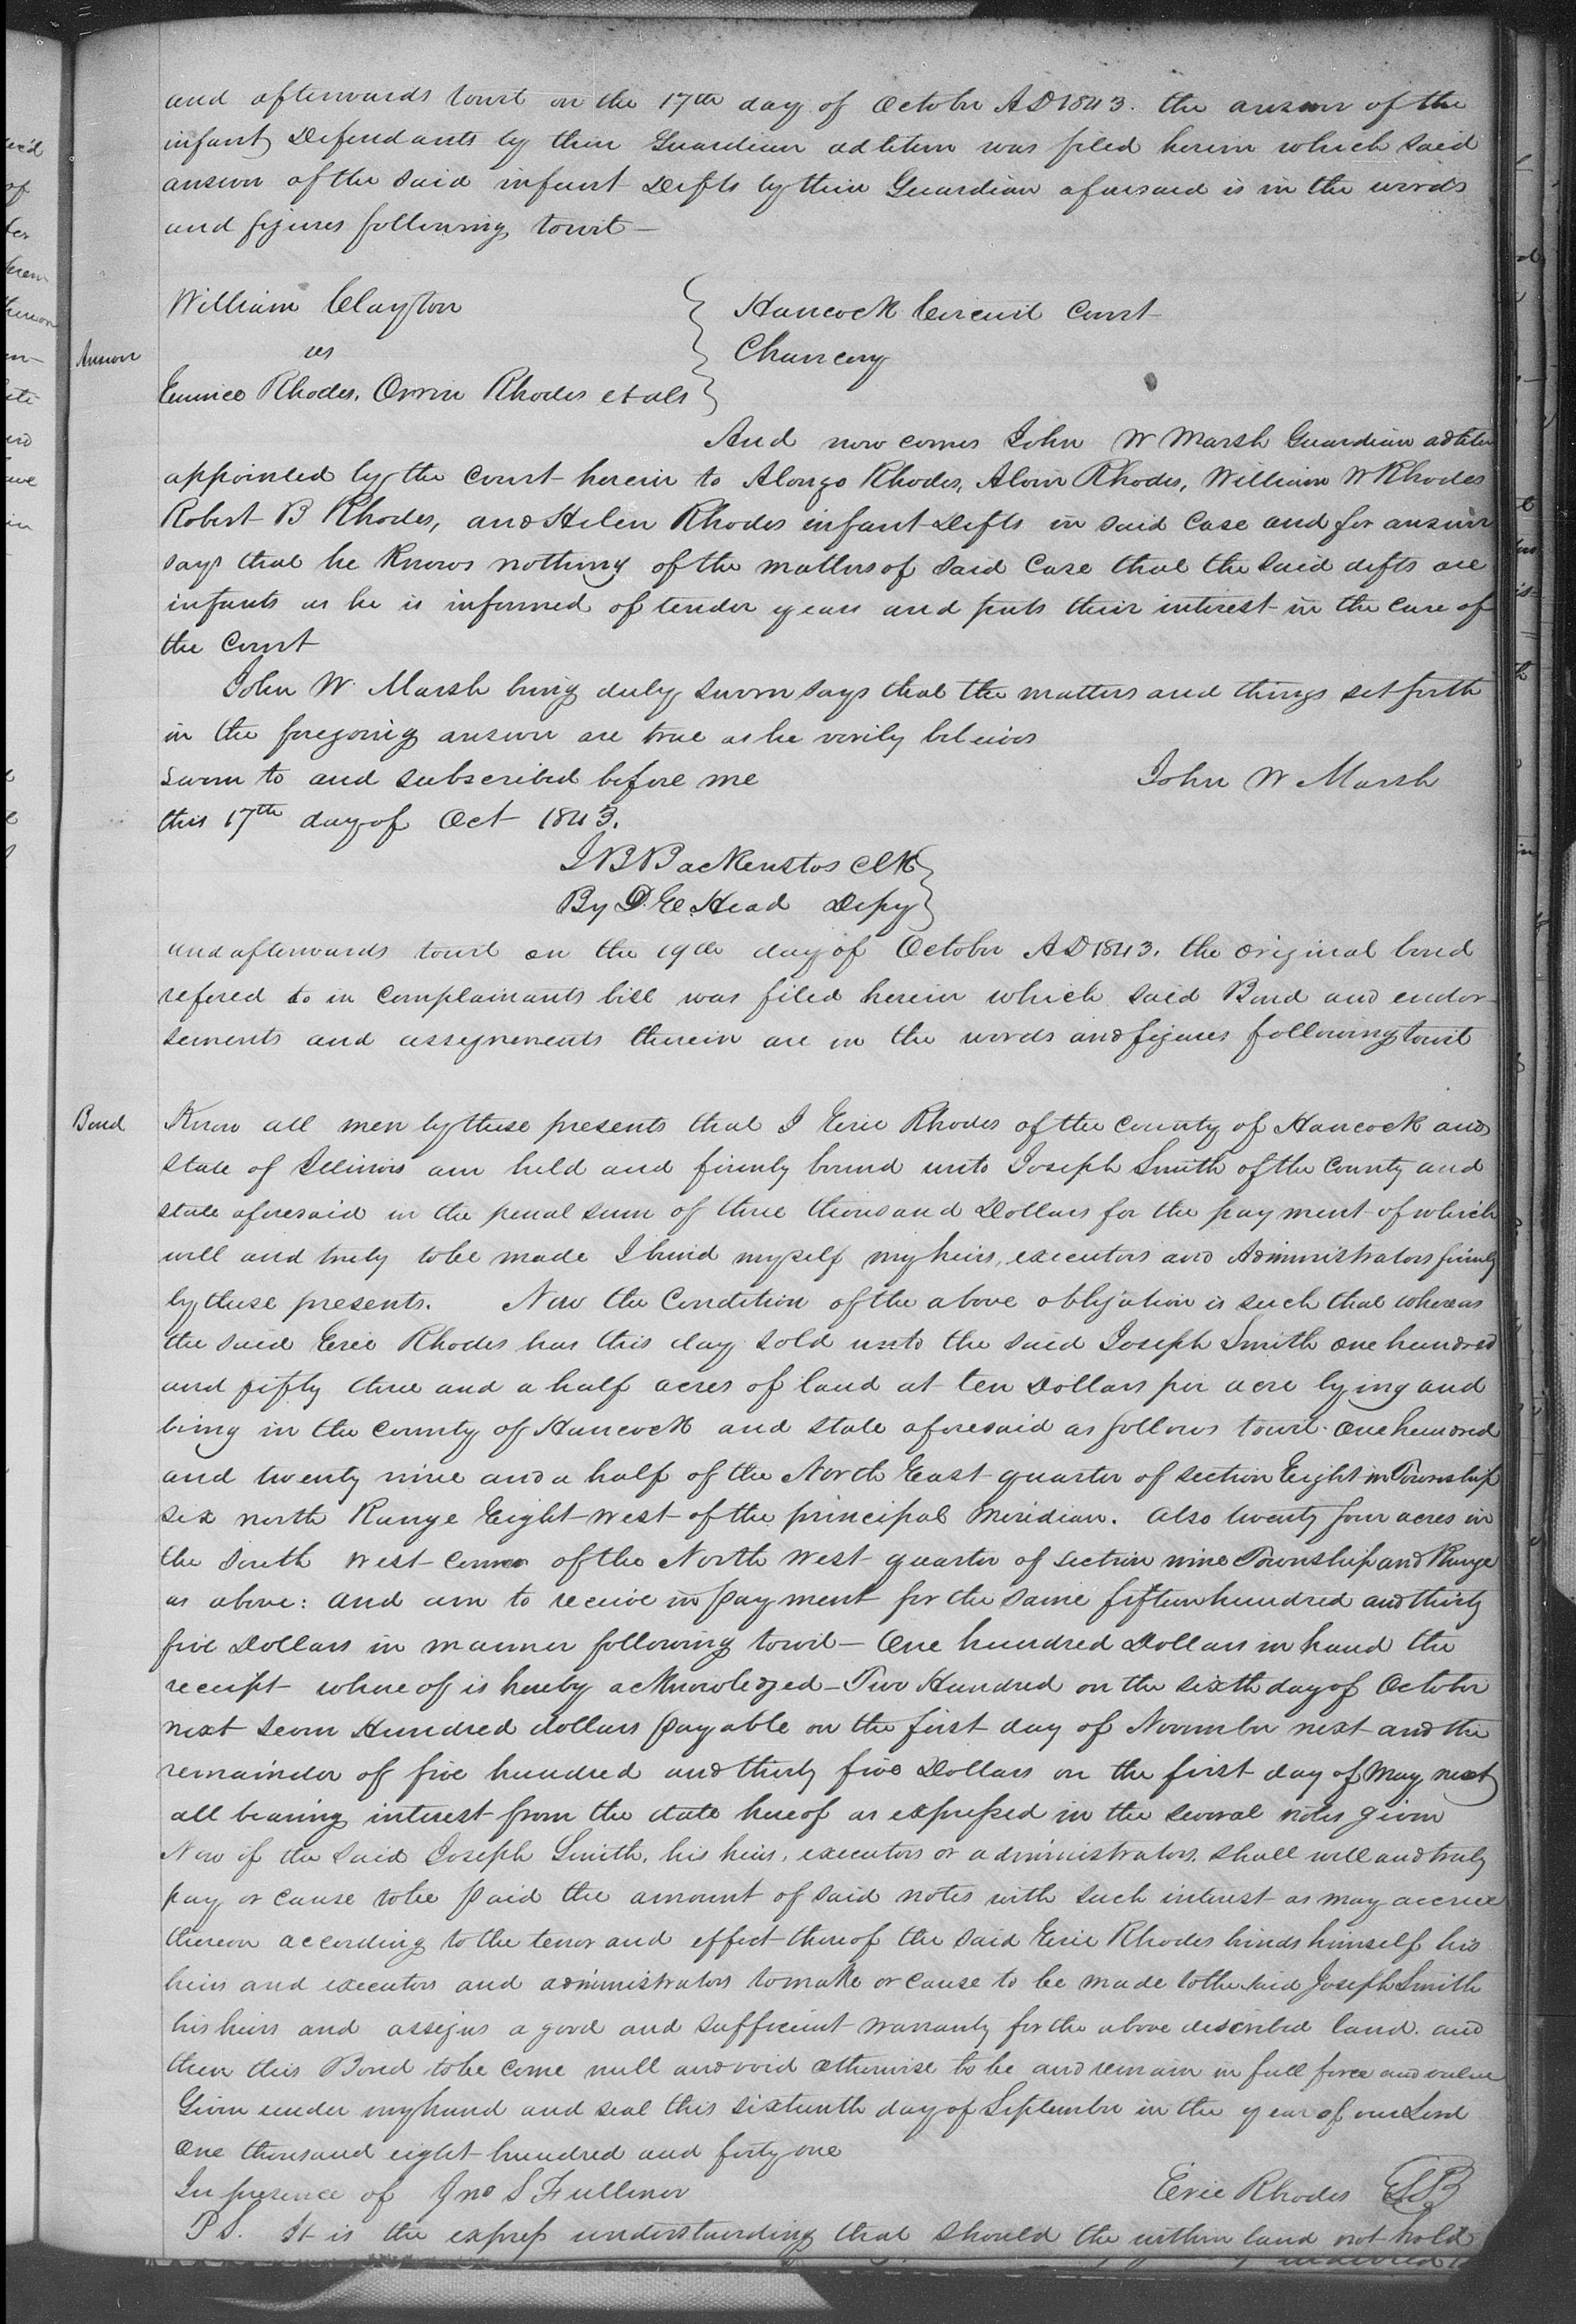 and afterwards towit on the 17th day of October AD 1843. the answer of the
infant Defendants by their Guardian adlitem was filed herein which said
answer of the said infant Defts by their Guardian aforesaid is in the words
and figures following towit—
William Clayton } Hancock Circuit Court
Answer vs } Chancery
Eunice Rhodes, Orrin Rhodes et als }
And now comes John W Marsh Guardian adlitem
appointed by the Court herein to Alonzo Rhodes, Alvin Rhodes, William W Rhodes
Robert B Rhodes, and Helen Rhodes infant Defts in said Case and for answer
says that he Knows nothing of the matters of said Case that the said defts are
infants as he is informed of tender years and puts their interest in the care of
the Court
John W. Marsh being duly sworn says that the matters and things set forth
in the foregoing answer are true as he verily believes
Sworn to and subscribed before me John W Marsh
this 17th day of Oct 1843.
J B Backenstos Clk }
By D. E. Head Depy }
and afterwards towit on the 19th day of October AD 1843. the original bond
refered to in Complainants bill was filed herein which said Bond and endor-
sements and assignments therein are in the words and figures following towit
Bond Know all men by these presents that I Eric Rhodes of the County of Hancock and
State of Illinois am held and firmly bound unto Joseph Smith of the County and
state aforesaid in the penal sum of three thousand Dollars for the payment of which
will and truly to be made I bind myself my heirs, executors and Administrators firmly
by these presents. Now the Condition of the above obligation is such that whereas
the said Eric Rhodes has this day sold unto the said Joseph Smith one hundred
and fifty three and a half acres of land at ten Dollars per acre lying and
being in the County of Hancock and State aforesaid as follows towit. One hundred
and twenty nine and a half of the North East quarter of section Eight in Township
six north Range Eight West of the principal Meridian. Also twenty four acres in
the South West Corner of the North West quarter of section nine Township and Range
as above: and am to receive in payment for the same fifteen hundred and thirty
five Dollars in manner following towit— One hundred Dollars in hand the
receipt where of is hereby acknowledged— Two Hundred on the sixth day of October
next seven Hundred dollars payable on the first day of November next and the
remainder of five hundred and thirty five Dollars on the first day of May next
all bearing interest from the date hereof as expressed in the several notes given
Now if the said Joseph Smith, his heirs, executors or administrators, shall will and truly
pay or cause to be paid the amount of said notes with such interest as may accrue
thereon according to the tenor and effect thereof the said Eric Rhodes binds himself his
heirs and executors and administrators to make or cause to be made to the said Joseph Smith
his heirs and assigns a good and sufficient warranty for the above described land. and
then this Bond to be come null and void otherwise to be and remain in full force and value
Given under my hand and seal this sixteenth day of September in the year of our Lord
One thousand eight hundred and forty one
In presence of Jno S Fullmer Eric Rhodes
P S. It is the express understanding that should the within land not hold